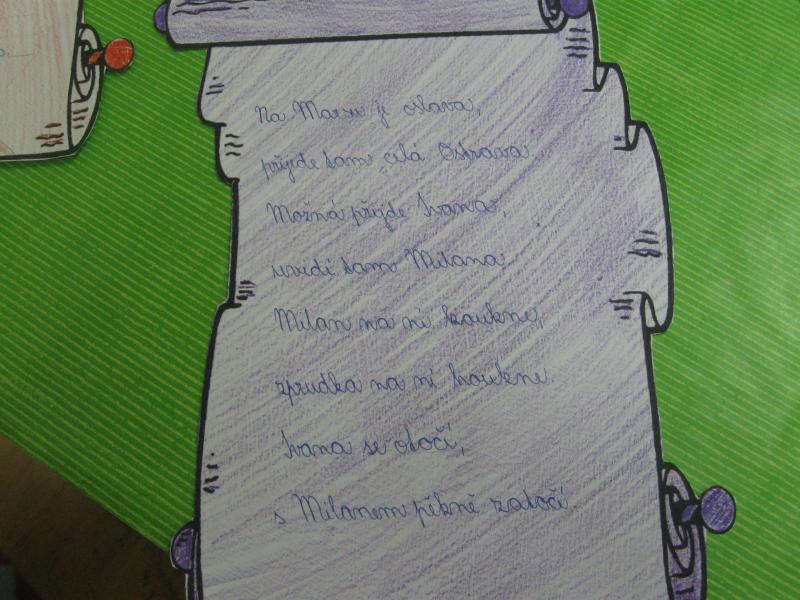 Na Marsu je oslava,
přijde tam celá Ostrava.
Možná přijde Ivana,
uvidí tam Milana.
Milan na ni koukne,
zprudka na ni houkne.
Ivana se otočí,
s Milanem pěkně zatočí.